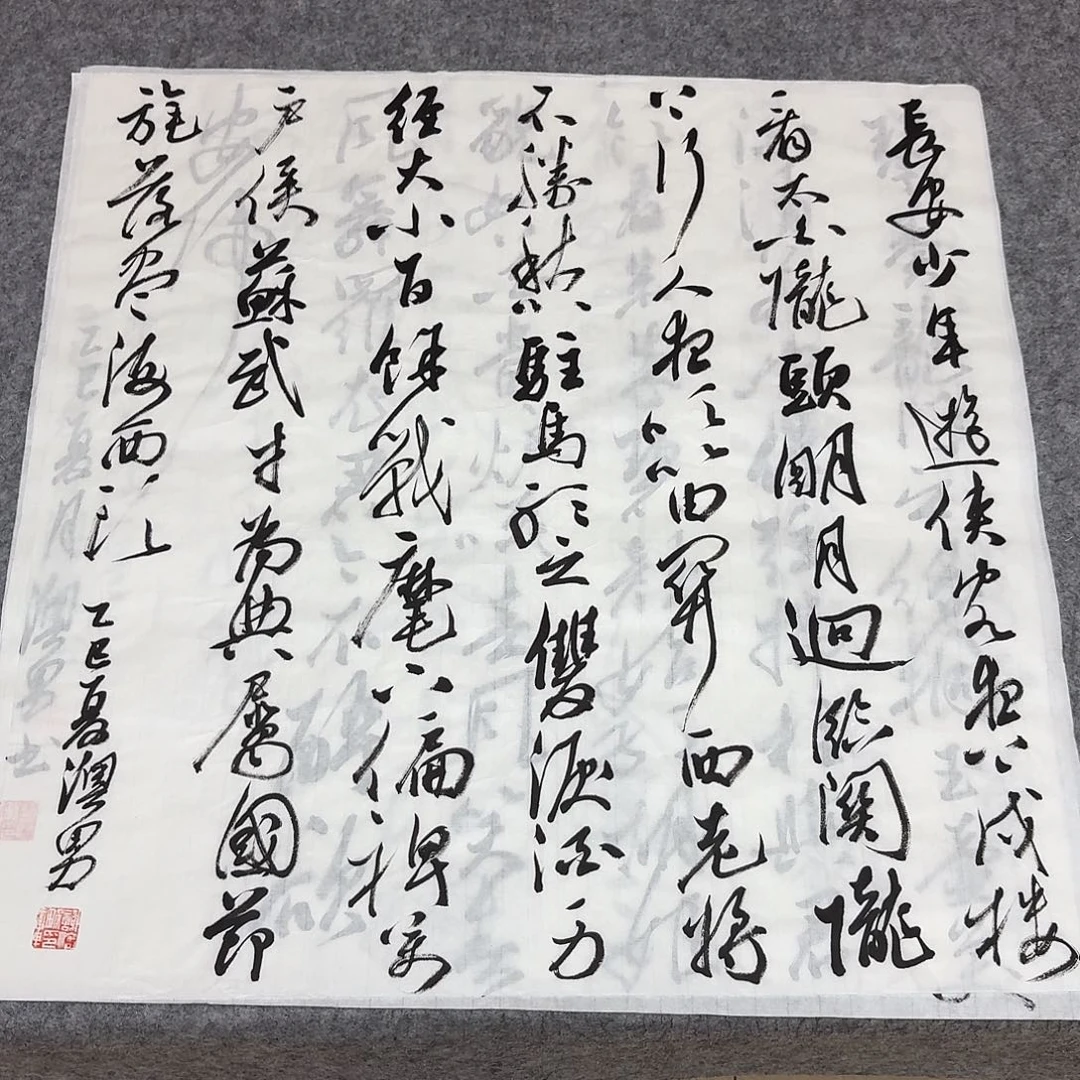 長安少年遊俠客夜上戍楼
看太白隴頭明月迥臨關隴
上行人夜吹笛関西老将
不勝愁駐馬聽之雙淚流身
經大小百餘戰麾下偏裨萬
户侯蘇武才為典屬國節
旄落盡海西頭
乙巳夏澳男